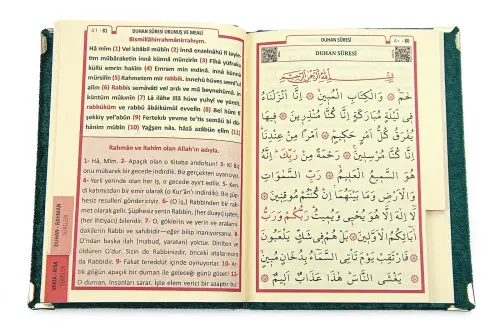 ٨١ - 81
DUHAN SÛRESİ OKUNUŞ VE MEALİ
Bismillâhirrahmânirrahıym.
Hâ mîm (1) Vel kitâbil mübîn (2) İnnâ enzelnâhü fî leyle-
tim mübâraketin innâ künnâ münzirîn (3) Fîhâ yüfraku
küllü emrin hakîm (4) Emram min ındinâ, innâ künnâ
mürsilîn (5) Rahmetem mir rabbik, innehû hüves semî'ul
alîm (6) Rabbis semâvâti vel ardı ve mâ beynehümâ, in
küntüm mûkınîn (7) Lâ ilâhe illâ hüve yuhyî ve yümît,
rabbüküm ve rabbü âbâikümül evvelîn (8) Bel hüm fî
şekkiy yel'abûn (9) Fertekıb yevme te'tis semâü bi dü-
hânim mübîn (10) Yağşen nâs, hâzâ azâbün elîm (11)
Rahmân ve Rahîm olan Allah'ın adıyla.
1- Hâ, Mîm. 2- Apaçık olan o Kitaba andolsun! 3- Ki Biz
onu mübarek bir gecede indirdik. Biz gerçekten uyarıcıyız.
4- Yerli yerinde olan her iş, o gecede ayırt edilir. 5- Ken-
di katımızdan bir emir olarak (o Kur'ân'ı indirdik). Biz şüp-
hesiz resulleri göndericiyiz. 6- (O iş,) Rabbinden bir rah-
met olarak gelir. Şüphesiz senin Rabbin, (her duayı) işiten,
(her ihtiyacı) bilendir. 7- O, göklerin ve yerin ve aralarin-
dakilerin Rabbi ve sahibidir—eğer bilip inanıyorsanız. 8-
O'ndan başka ilah (mabud, yaratan) yoktur. Dirilten ve
öldüren O'dur. Sizin de Rabbinizdir, önceki atalarınızın
da Rabbidir. 9- Fakat tereddüt içinde oynuyorlar. 10- Ar-
tık göğün apaçık bir duman ile geleceği günü gözle! 11-
O duman, insanları sarar. İşte elem verici bir azaptır bu.
DUHAN - RAHMAN
SÛRELERİ
VAKIA - KISA
SÛRELER
DUHAN SÛRESİ
٨٠ - 80
DUHAN SÛRESİ
بِسْمِ اللّٰهِ الرَّحْمٰنِ الرَّحِيمِ
حٰمٓ ۞ وَالْكِتَابِ الْمُبِينِ ۞ إِنَّا أَنْزَلْنَاهُ
فِي لَيْلَةٍ مُبَارَكَةٍ إِنَّا كُنَّا مُنْذِرِينَ ۞ فِيهَا
يُفْرَقُ كُلُّ أَمْرٍ حَكِيمٍ ۞ أَمْرًا مِنْ عِنْدِنَا
إِنَّا كُنَّا مُرْسِلِينَ ۞ رَحْمَةً مِنْ رَبِّكَ إِنَّهُ
هُوَ السَّمِيعُ الْعَلِيمُ ۞ رَبِّ السَّمٰوَاتِ
وَالْأَرْضِ وَمَا بَيْنَهُمَا إِنْ كُنْتُمْ مُوقِنِينَ ۞
لَا إِلٰهَ إِلَّا هُوَ يُحْيِي وَيُمِيتُ رَبُّكُمْ وَرَبُّ
اٰبَائِكُمُ الْأَوَّلِينَ ۞ بَلْ هُمْ فِي شَكٍّ يَلْعَبُونَ
۞ فَارْتَقِبْ يَوْمَ تَأْتِي السَّمَاءُ بِدُخَانٍ مُبِينٍ
۞ يَغْشَى النَّاسَ هٰذَا عَذَابٌ أَلِيمٌ ۞